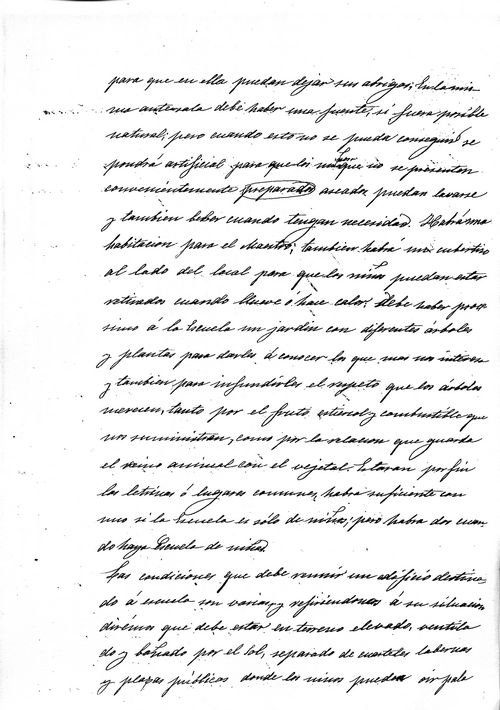 para que en ella puedan dejar sus abrigos; En la mis
ma antesala debe haber una fuente, si fuera posible
natural; pero cuando esto no se pueda conseguir se
pondrá artificial para que los niños que no se presenten
convenientemente preparados aseados puedan lavarse
y tambien beber cuando tengan necesidad. Habrá una
habitacion para el Maestro; tambien habrá un cubertizo
al lado del local para que los niños puedan estar
retirados cuando llueve ó hace calor. Debe haber proc
simo á la Escuela un jardin con diferentes árboles
y plantas para darles á conocer los que mas nos interesa
y tambien para infundirles el respeto que los árboles
merecen, tanto por el fruto, estiercol y combustible que
nos suministran, como por la relacion que guarda
el reino animal con el vejetal. Estaran por fin
las letrinas ó lugares comunes, habra suficiente con
uno si la Escuela es sólo de niños; pero habra dos cuan
do haya Escuela de niñas.
Las condiciones que debe reunir un edificio destina
do á escuela son varias, y refiriendonos á su situacion
dirémos que debe estar en terreno elevado, ventila
do y bañado por el Sol, separado de cuarteles tabernas
y plazas públicas donde los niños puedan oir pala